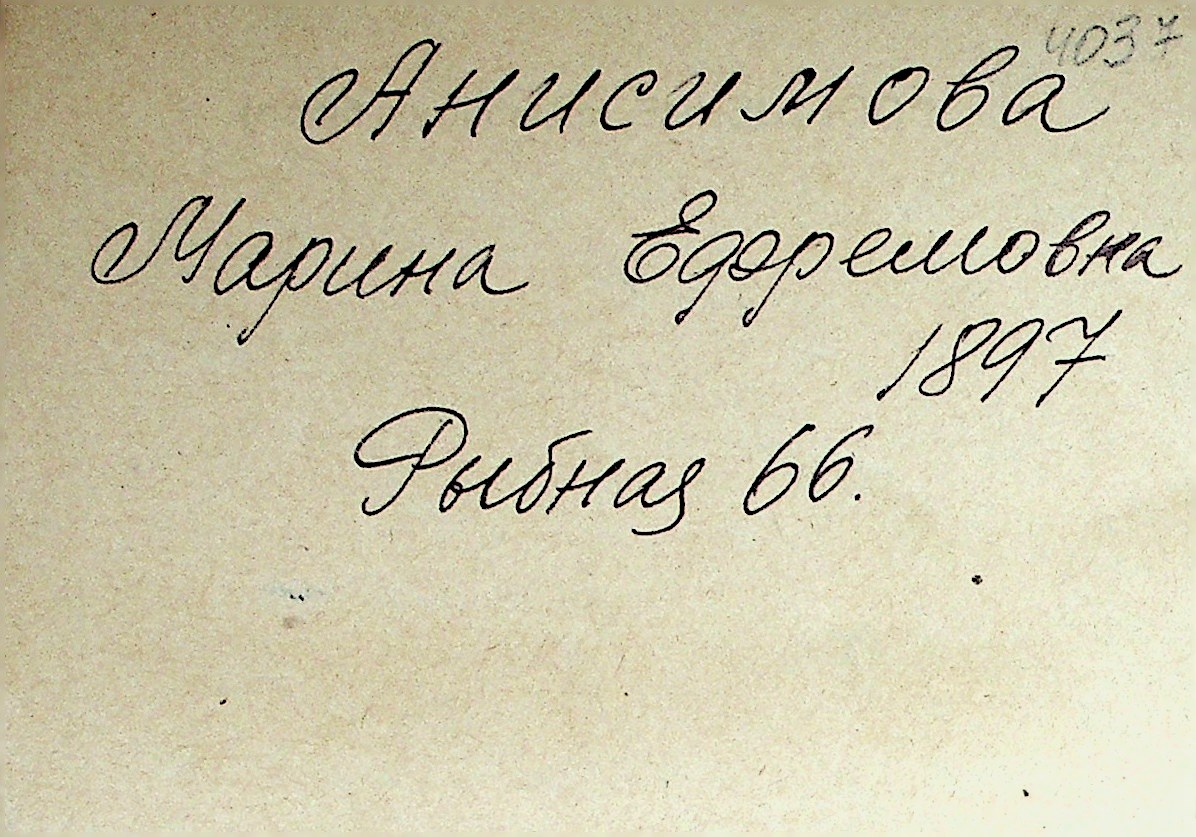 4037
Анисимова
Марина Ефремовна
1897
Рыбная 66.